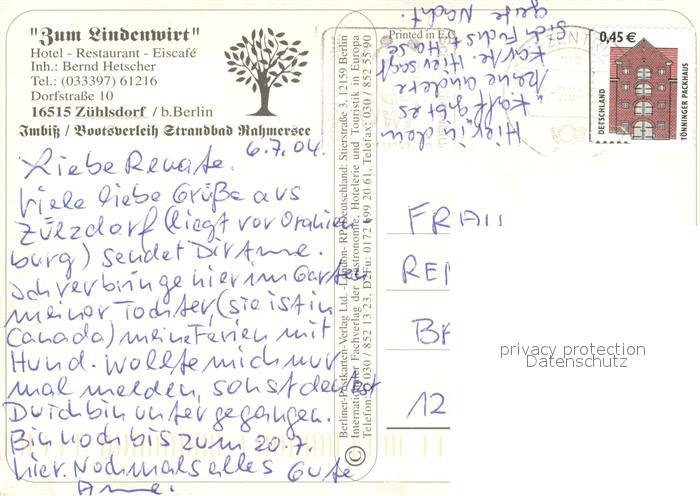 "Zum Lindenwirt"
Hotel - Restaurant - Eiscafé
Inh.: Bernd Hetscher
Tel.: (033397) 61216
Dorfstraße 10
16515 Zühlsdorf / b.Berlin
Imbiß / Bootsverleih Strandbad Rahmersee
6.7.04.
Liebe Renate.
Viele liebe Grüße aus
Zülzdorf (liegt vor Oranien-
burg) sendet Dir Anne.
Ich verbringe hier im Garten
meiner Tochter, (sie ist in
Canada) meine Ferien mit
Hund. Wollte mich nur
mal melden, sonst denkst
Du ich bin untergegangen.
Bin noch bis zum 20.7.
hier. Nochmals alles Gute
Anne.
Hier in dem
"Kaff" gibt es
keine andere
Karte. Hier sagt
sich Fuchst Hase
gute Nacht.
Berliner-Postkarten-Verlag Ltd. -London- RP-Deutschland: Stierstraße 3, 12159 Berlin
International Fachverlag der Gastronomie, Hotelerie und Touristik in Europa
Telefon: 030 / 852 13 23, D2Fu: 0172 699 20 61, Telefax: 030 / 852 55 90
©
Printed in E.C.
ZENTR
0,45 €
DEUTSCHLAND
TÖNNINGER PACKHAUS
FRAU
12
privacy protection
Datenschutz